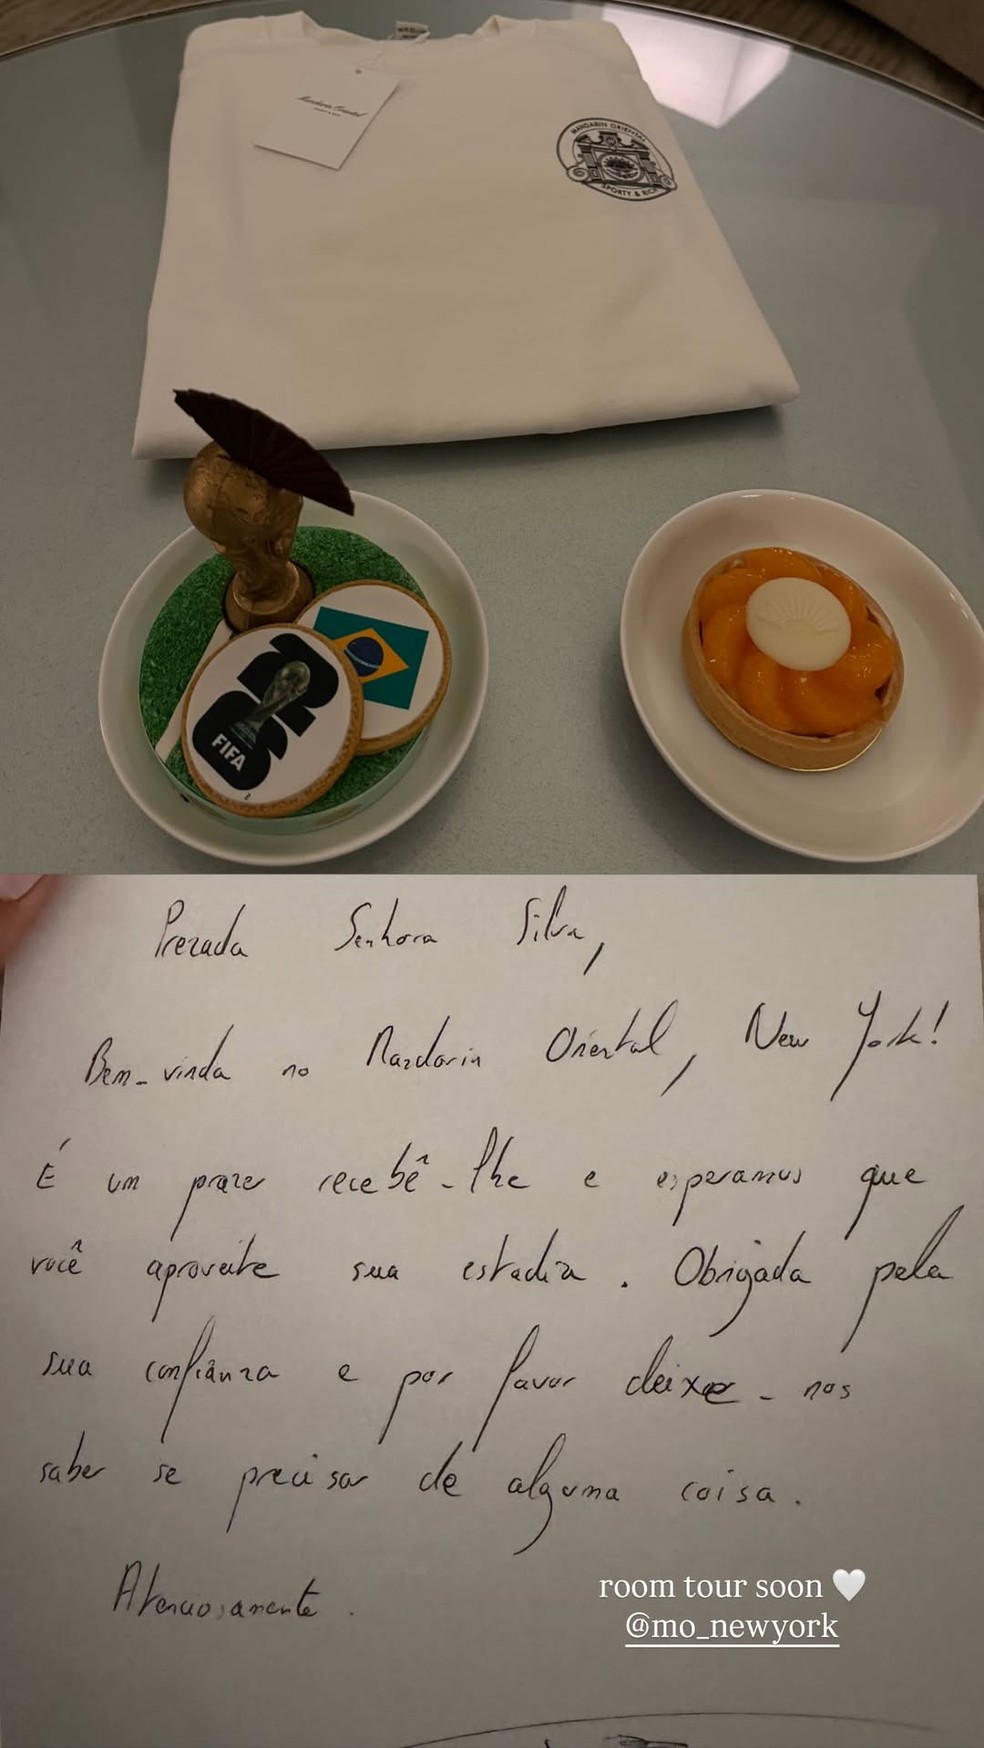 Mandarin Oriental
MANDARIN ORIENTAL
SPORTY & RICH
26
FIFA
Prezada Senhora Silva,
Bem-vinda no Mandarin Oriental, New York!
É um prazer recebê-lhe e esperamos que
você aproveite sua estadia. Obrigada pela
sua confiança e por favor deixe-nos
saber se precisar de alguma coisa.
Atenciosamente.
room tour soon 🤍
@mo_newyork